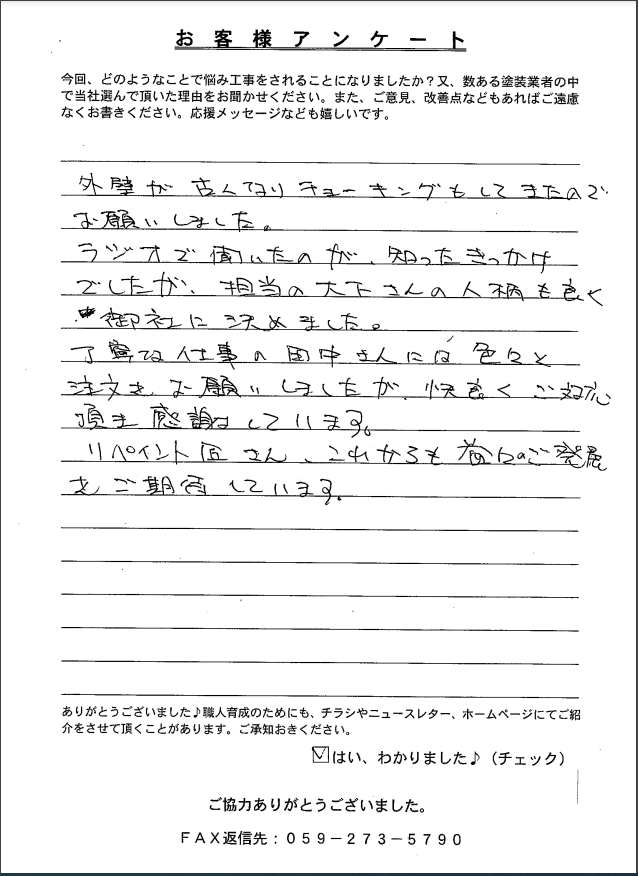 お客様アンケート
今回、どのようなことで悩み工事をされることになりましたか？又、数ある塗装業者の中
で当社選んで頂いた理由をお聞かせください。また、ご意見、改善点などもあればご遠慮
なくお書きください。応援メッセージなども嬉しいです。
外壁が古くなりチョーキングもしてきたので
お願いしました。
ラジオで聞いたのが、知ったきっかけ
でしたが、担当の大下さんの人柄も良く
御社に決めました。
丁寧な仕事の田中さんには色々と
注文をお願いしましたが、快良くご対応
頂き感謝しています。
リペイント匠さん、これからも益々のご発展
をご期待しています。
ありがとうございました♪職人育成のためにも、チラシやニュースレター、ホームページにてご紹
介をさせて頂くことがあります。ご承知おきください。
☑はい、わかりました♪（チェック）
ご協力ありがとうございました。
ＦＡＸ返信先：０５９－２７３－５７９０